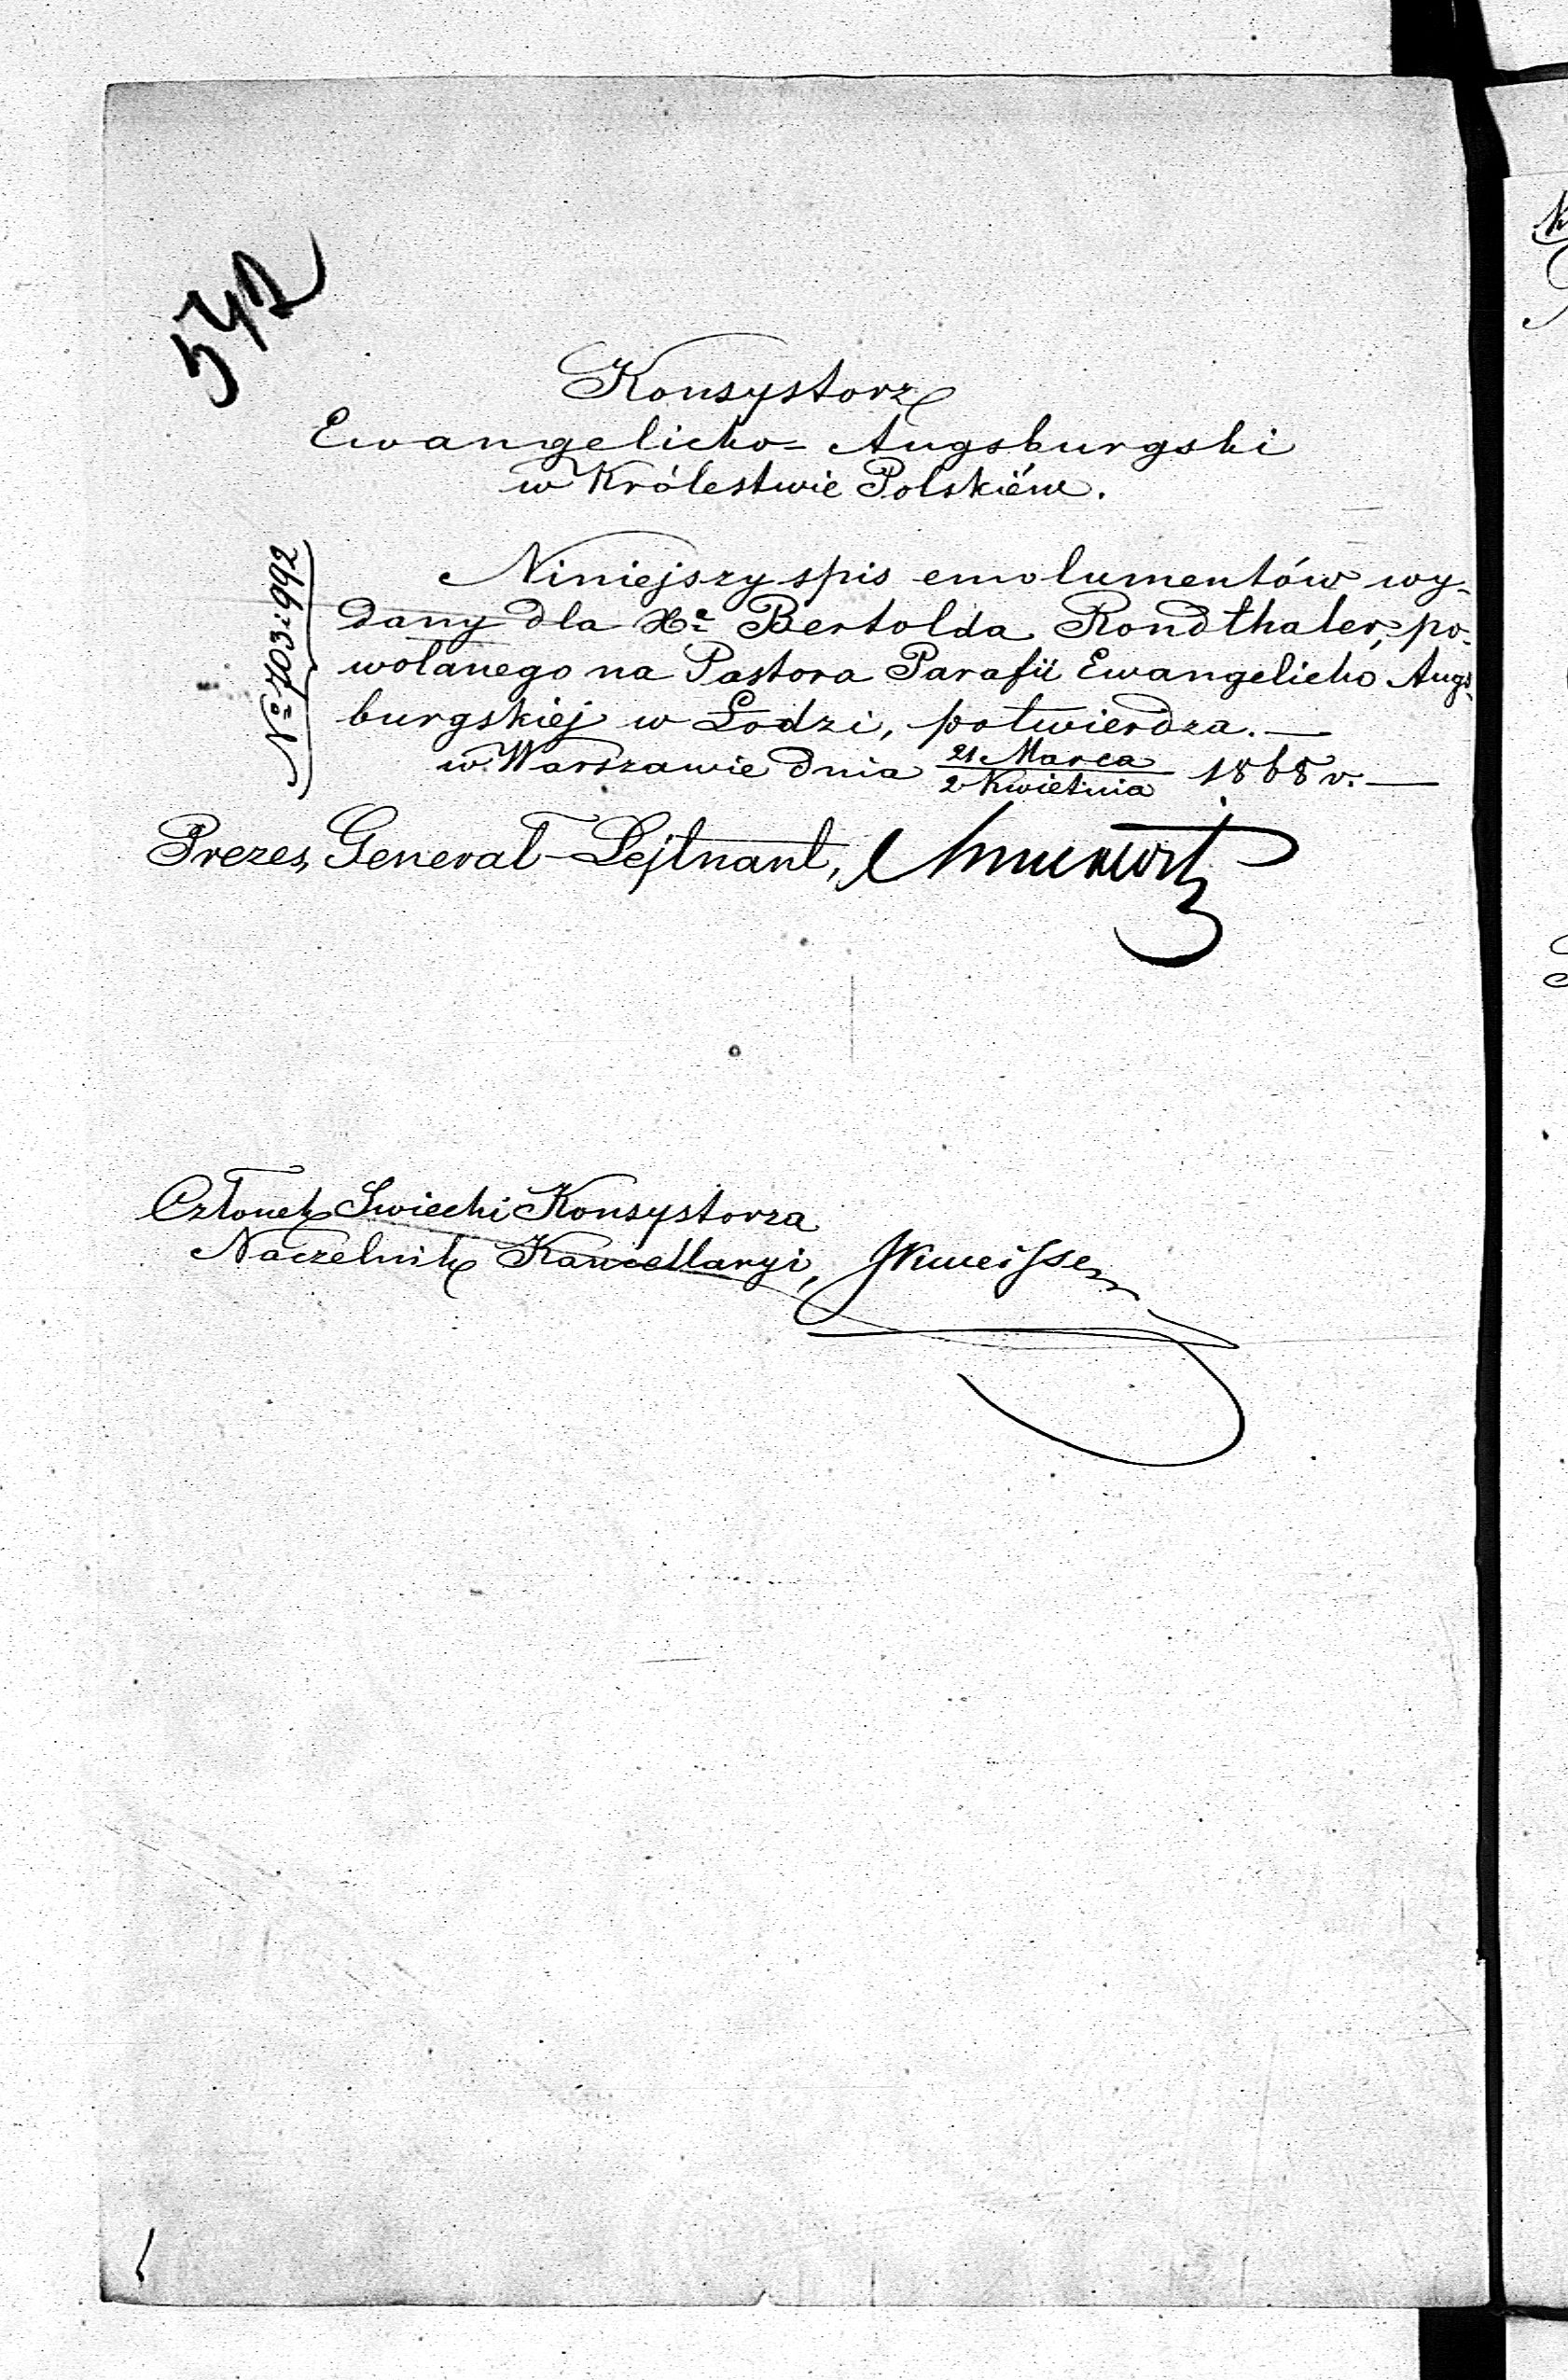 542
Konsystorz
Ewangelicko-Augsburgski
w Królestwie Polskiém.
№ 703 i 992
Niniejszy spis emolumentów wy-
dany dla Xa Bertolda Rondthaler, po-
wołanego na Pastora Parafii Ewangelicko Augs-
burgskiej w Łodzi, potwierdza.—
w Warszawie dnia 21 Marca / 2 Kwietnia 1868 r.—
Prezes, Generał-Lejtnant,
Członek Swiecki Konsystorza
Naczelnik Kancellaryi,